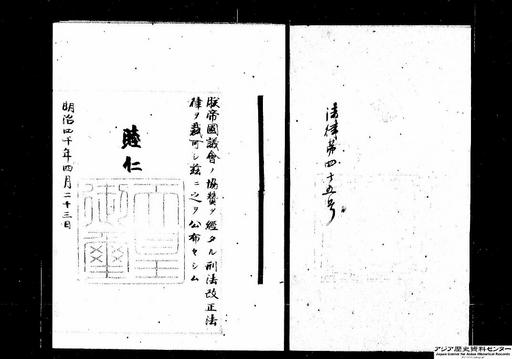 法律第四十五号
朕帝國議會ノ協賛ヲ經タル刑法改正法
律ヲ裁可シ茲ニ之ヲ公布セシム
睦仁
天皇御璽
明治四十年四月二十三日
アジア歴史資料センター
Japan Center for Asian Historical Records